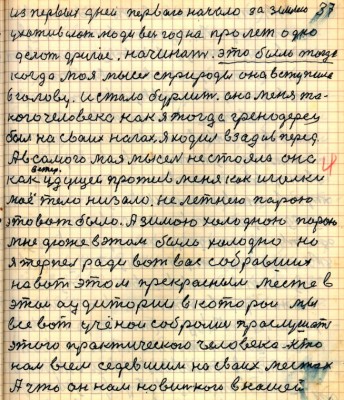 из первых дней перваго начало за зимою 37
ухотивают люди всі год на про лет одно
делат другое, начинают. это было тогда
когда моя мысл с природы она вступила
в голову. и стала бурлит. она меня та-
кого человека как я тогда греподерец
был на своих нагах, я ходил взад и в перед
А в самого моя мысел не стояла она
ветер.
как идущей против меня как иголки
маё тело низало. не летнею парою
это вот было. А зимою холодною парою
мне дюже в этом было холодно но
я терпел ради вот вас собравших
на вот этом прекрасным месте в
этой аудитории в которой мы
все вот учёной собролис прослушат
этого практического человека што
нам всем седевшим на своих местах
А что он нам новинкого в нашей